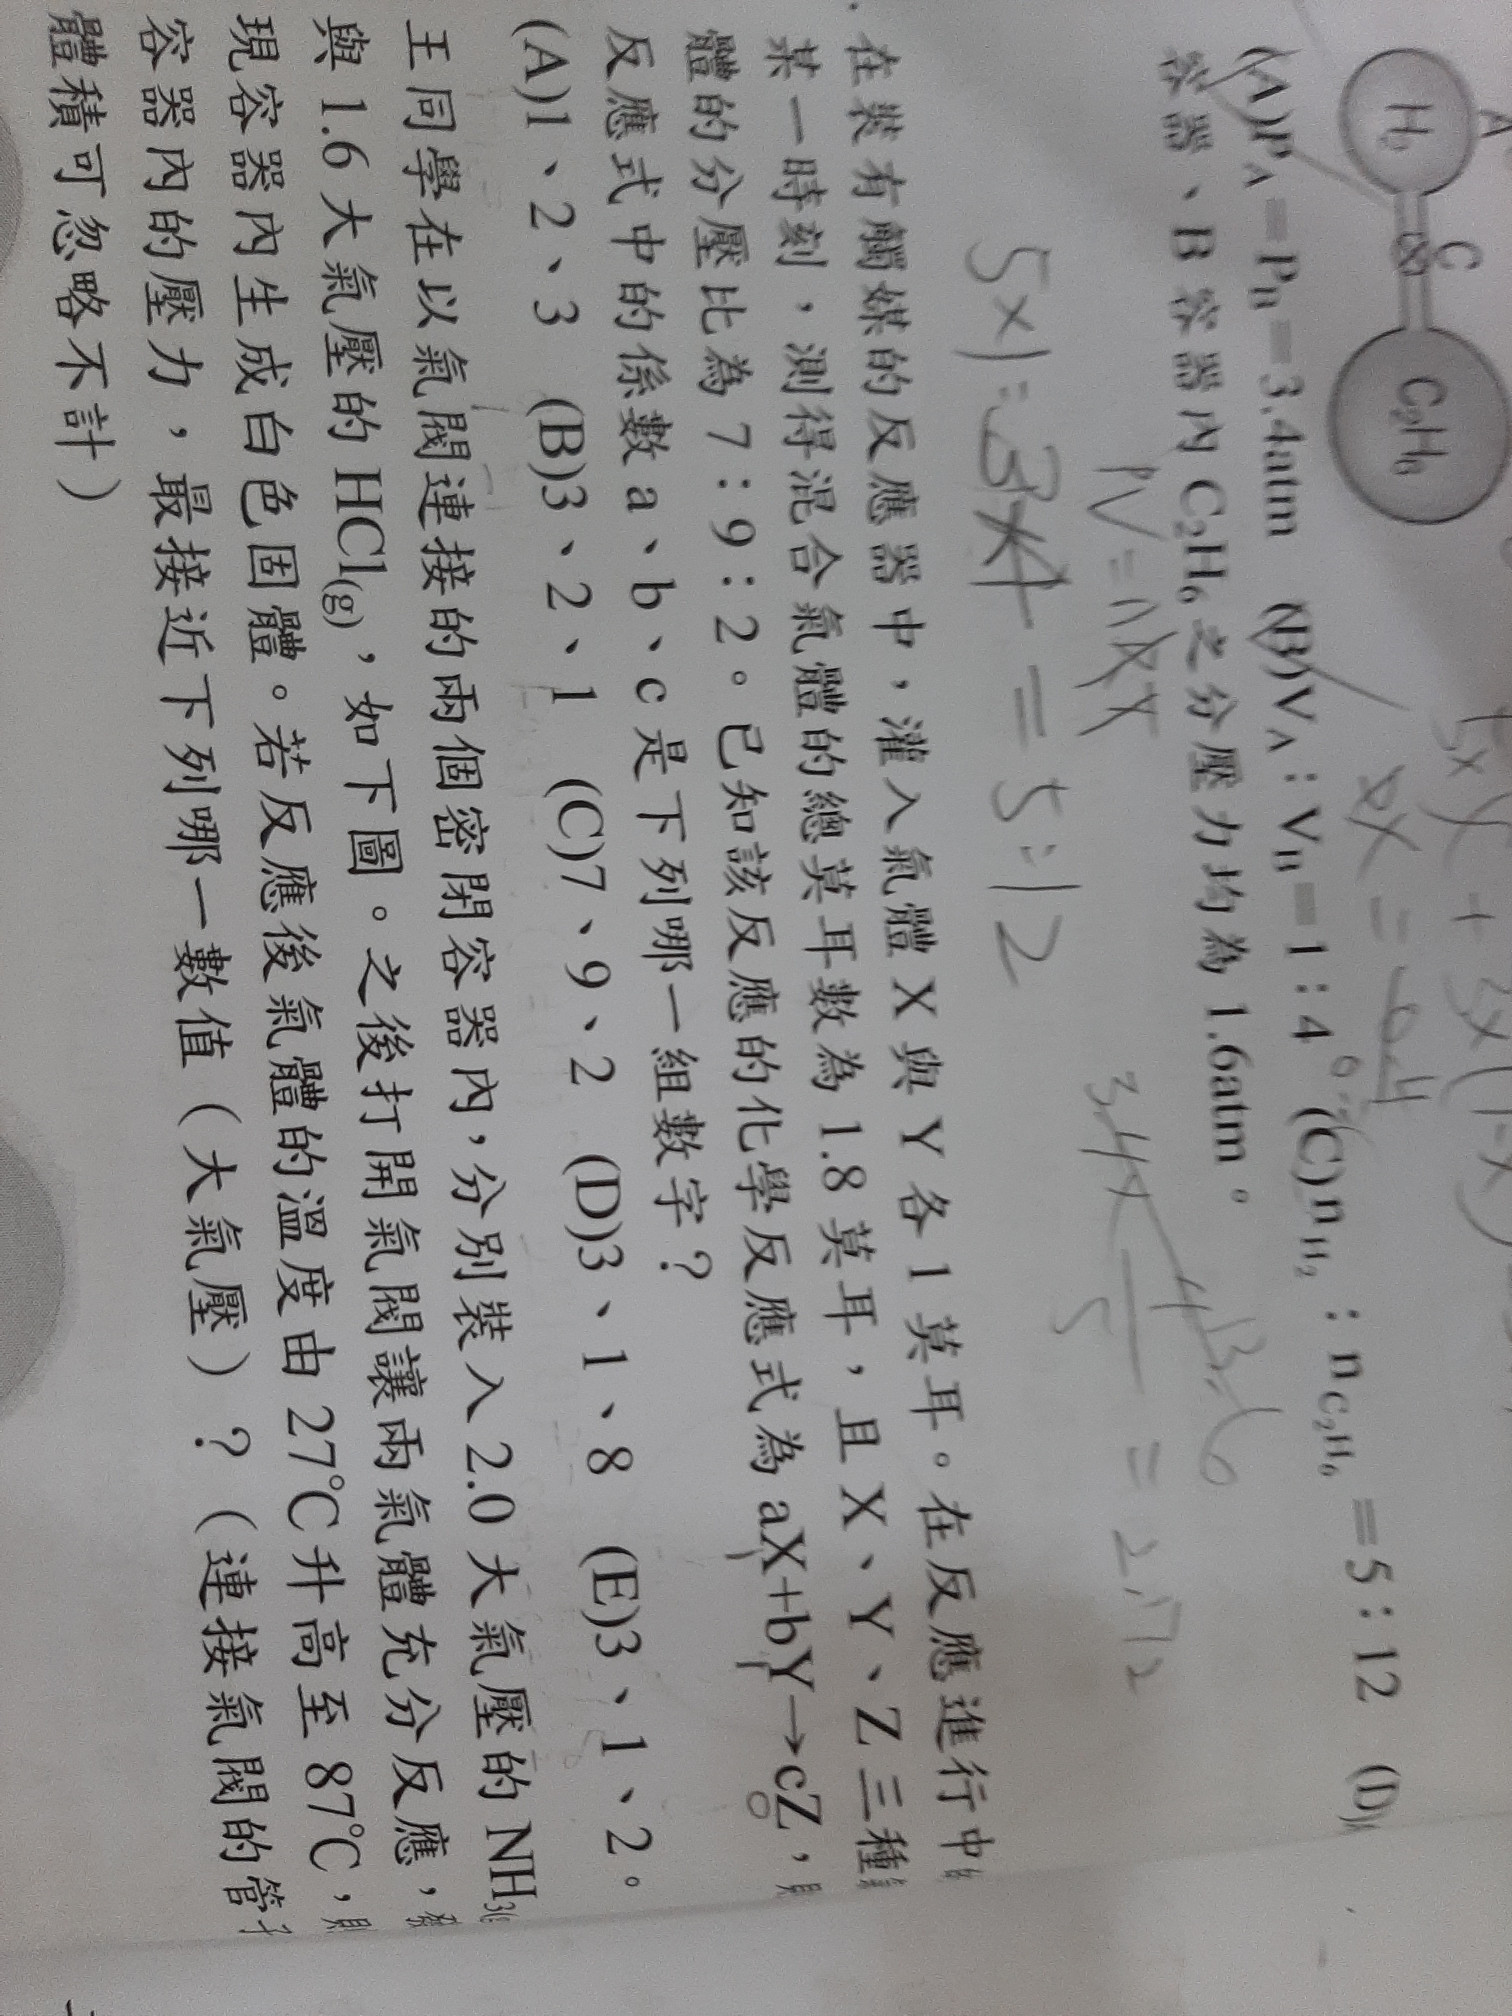 A
C
H₂
C₂H₆
(A)P_A=P_B=3.4atm (B)V_A:V_B=1:4 (C)n_H₂:n_C₂H₆=5:12 (D)
容器、B容器內C₂H₆之分壓力均為1.6atm。
PV=nRT
5×1:3×4=5:12
=2.72
在裝有觸媒的反應器中,灌入氣體X與Y各1莫耳。在反應進行中
某一時刻,測得混合氣體的總莫耳數為1.8莫耳,且X、Y、Z三種
體的分壓比為7:9:2。已知該反應的化學反應式為aX+bY→cZ,
反應式中的係數a、b、c是下列哪一組數字?
(A)1、2、3 (B)3、2、1 (C)7、9、2 (D)3、1、8 (E)3、1、2。
王同學在以氣閥連接的兩個密閉容器內,分別裝入2.0大氣壓的NH₃
與1.6大氣壓的HCl(g),如下圖。之後打開氣閥讓兩氣體充分反應,
現容器內生成白色固體。若反應後氣體的溫度由27℃升高至87℃,
容器內的壓力,最接近下列哪一數值(大氣壓)?(連接氣閥的管
體積可忽略不計)